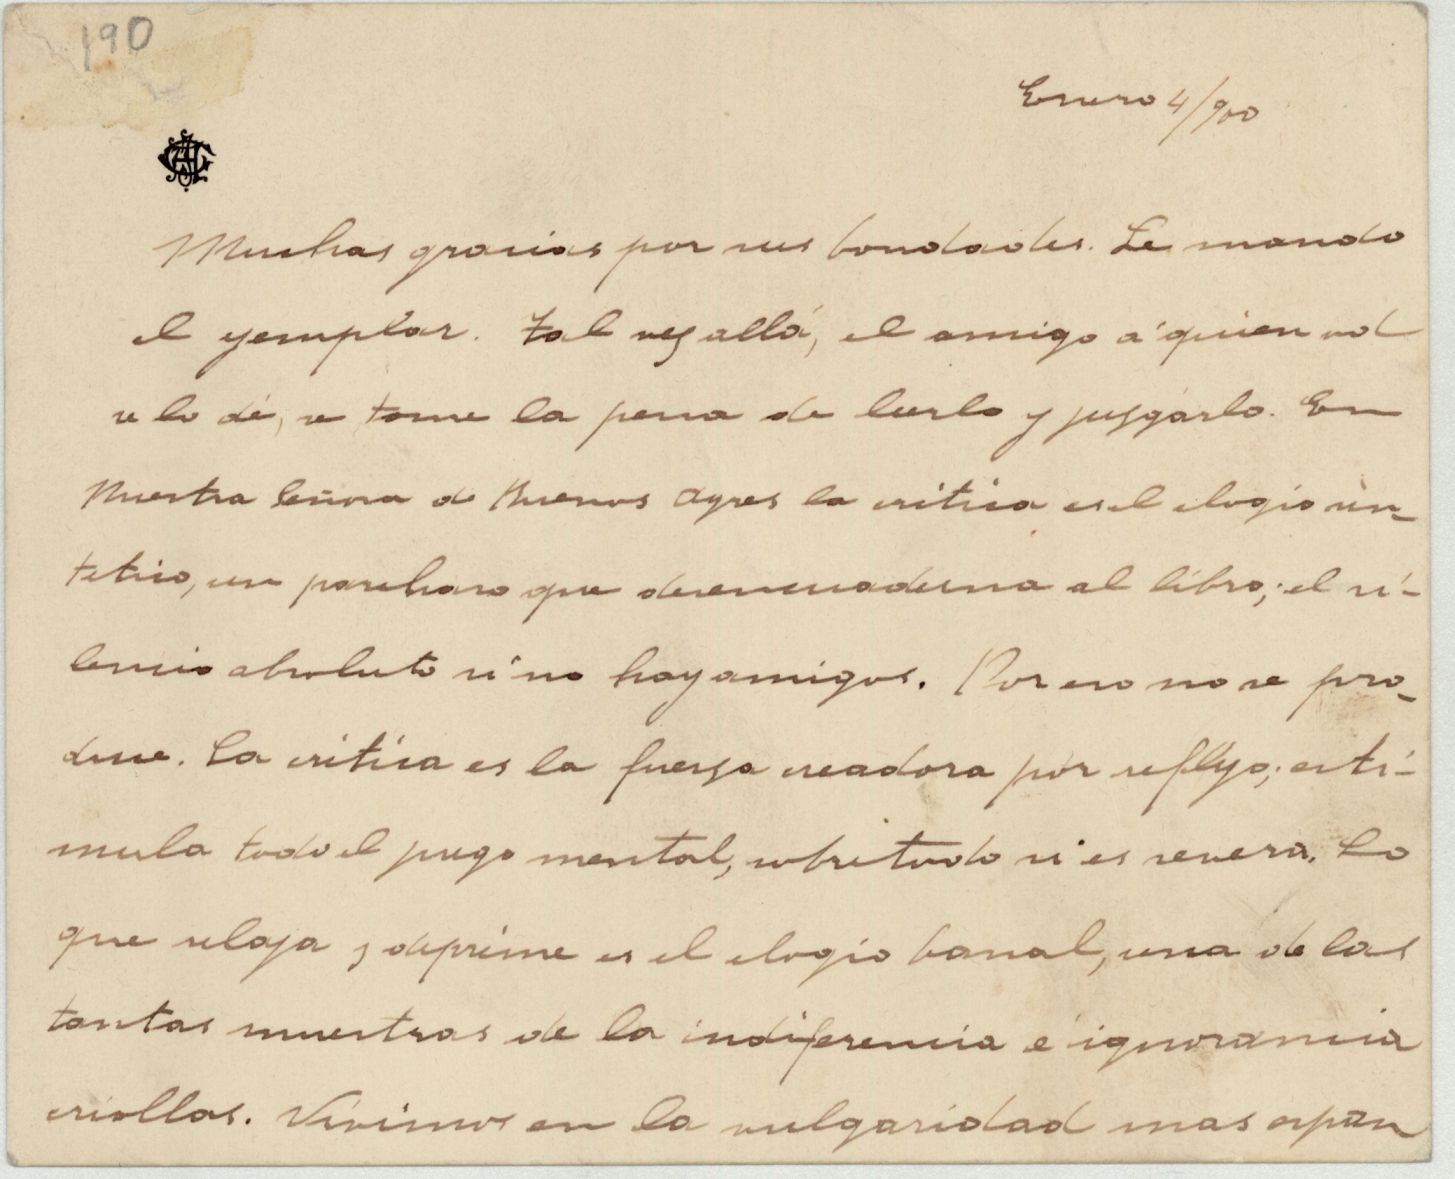 190
Enero 4/900
Muchas gracias por sus bondades. Le mando
el ejemplar. Tal vez allá, el amigo á quien vd
se lo dé, se tome la pena de leerlo y juzgarlo. En
Nuestra Señora de Buenos Ayres la critica es el elogio sin-
tetico, un parchazo que desencuaderna al libro; el si-
lencio absoluto si no hay amigos. Por eso no se pro-
duce. La critica es la fuerza creadora por reflejo; esti-
mula todo el juego mental, sobre todo si es severa. Lo
que relaja y deprime es el elogio banal, una de las
tantas muestras de la indiferencia é ignorancia
criollas. Vivimos en la vulgaridad mas espan